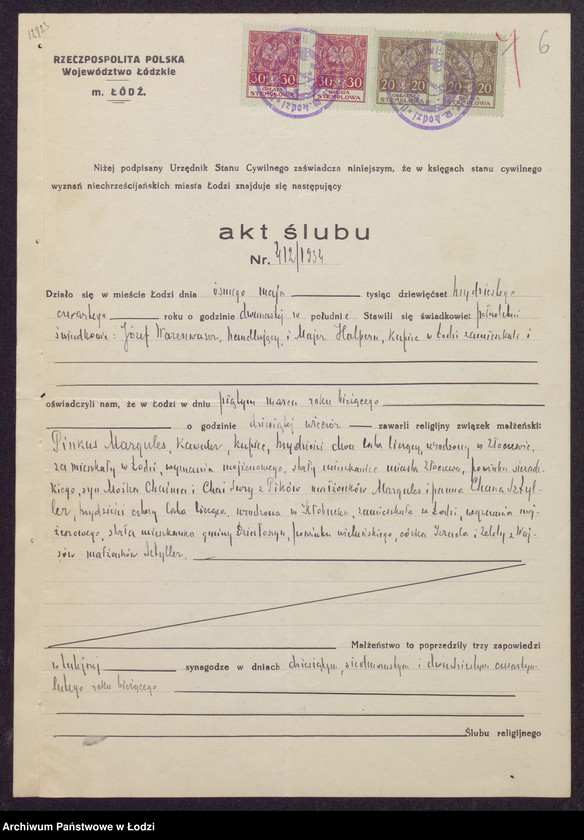 12923
6
RZECZPOSPOLITA POLSKA
Województwo Łódzkie
m. ŁÓDŹ.
30 30 30 30 20 20 20 20
OPŁATA STEMPLOWA OPŁATA STEMPLOWA OPŁATA STEMPLOWA OPŁATA STEMPLOWA
Niżej podpisany Urzędnik Stanu Cywilnego zaświadcza niniejszym, że w księgach stanu cywilnego
wyznań niechrześcijańskich miasta Łodzi znajduje się następujący
akt ślubu
Nr. 412/1934
Działo się w mieście Łodzi dnia ósmego maja tysiąc dziewięćset trzydziestego
czwartego roku o godzinie dwunastej w południe Stawili się świadkowie: pełnoletni
świadkowie: Józef Warenwaser, handlujący, i Majer Halpern, kupiec w Łodzi zamieszkali i
oświadczyli nam, że w Łodzi w dniu piątym marca roku bieżącego
o godzinie dziesiątej wieczór zawarli religijny związek małżeński:
Pinkus Margules, kawaler, kupiec, trzydzieści dwa lata liczący, urodzony w Złoczewie,
zamieszkały w Łodzi, wyznania mojżeszowego, stały mieszkaniec miasta Złoczewa, powiatu sieradz-
kiego, syn Mośka Chaima i Chai Sury z Pików małżonków Margules i panna Chana Sztyl-
ler, trzydzieści cztery lata licząca, urodzona w Kłobucku, zamieszkała w Łodzi, wyznania moj-
żeszowego, stała mieszkanka gminy Działoszyn, powiatu wieluńskiego, córka Izraela i Zeldy z Waj-
sów małżonków Sztyller.
Małżeństwo to poprzedziły trzy zapowiedzi
w tutejszej synagodze w dniach dziesiątym, siedemnastym i dwudziestym czwartym
lutego roku bieżącego
Ślubu religijnego
Archiwum Państwowe w Łodzi